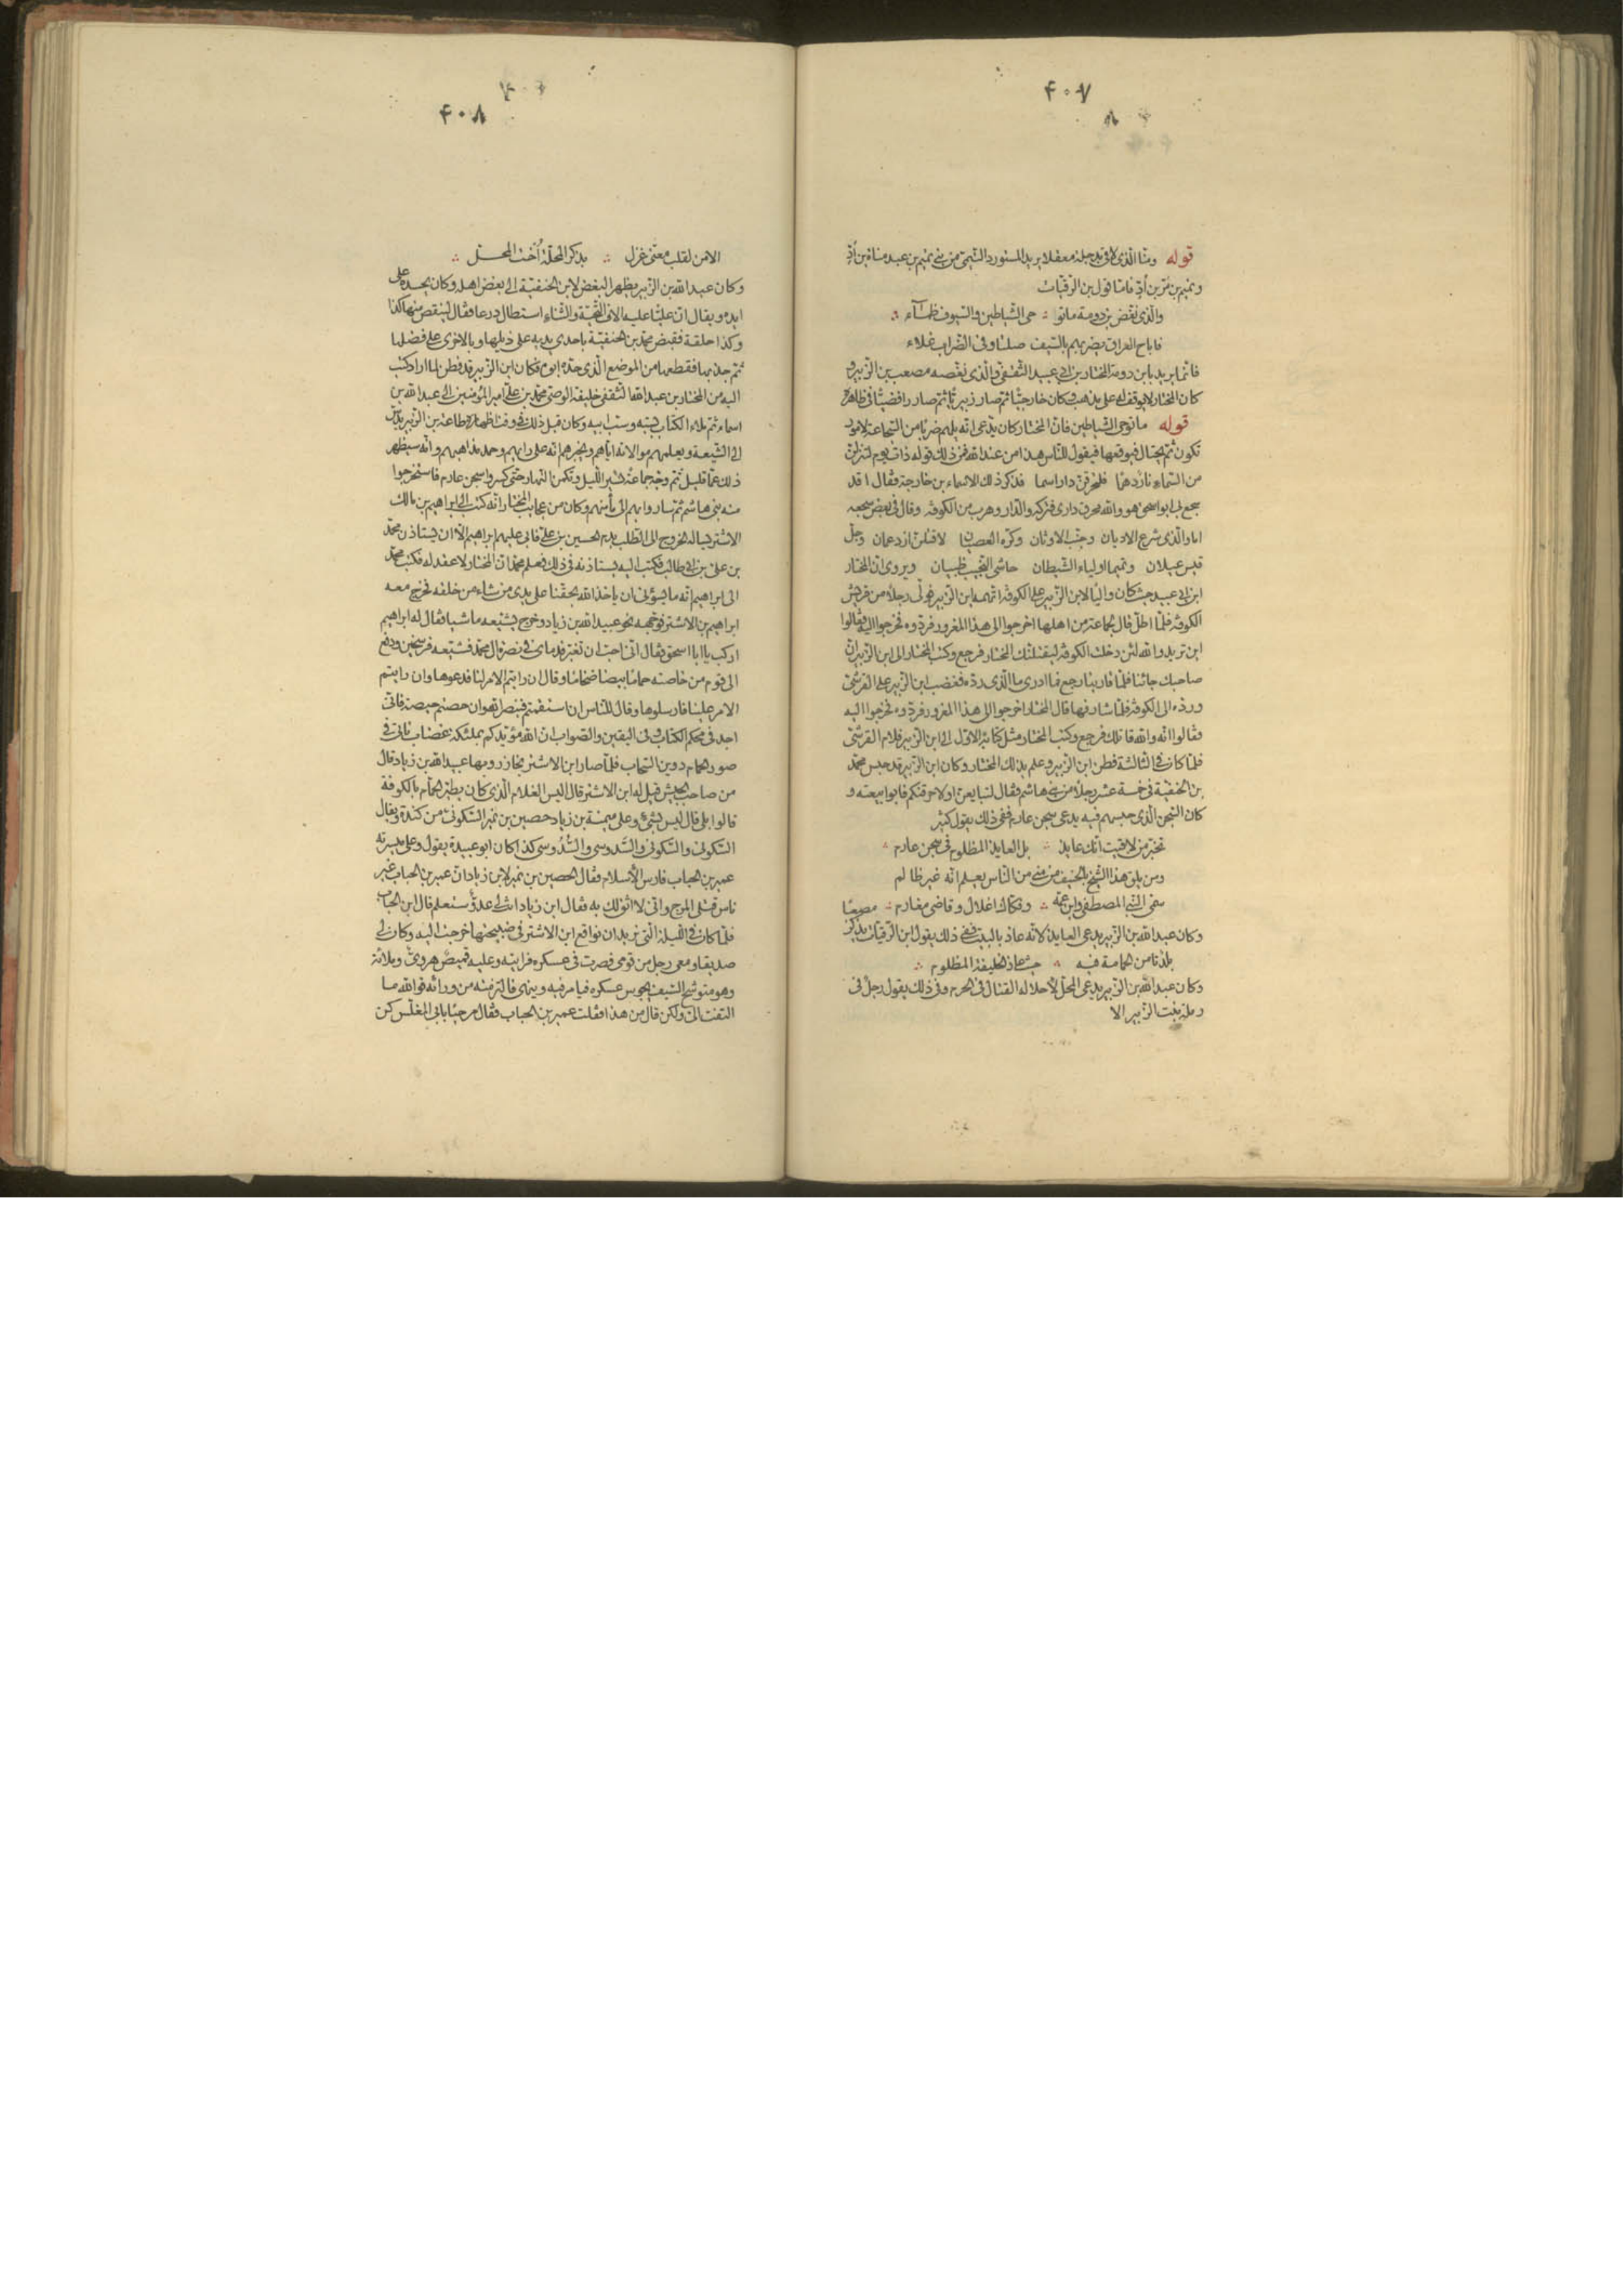 ٤٠٧
قوله ومنا الذي لاقى بدجلة معقلا يريد المستورد التيمي من بني تميم بن عبد مناة بن أد
وتميم بن مر بن أد فاما قول ابن الرقيات
والذي نغص بن دومة ماتوا حى الشياطين والسيوف ظمآء
فاباح العراق يضربهم بالسيف صلتا وفى الضراب غلاء
فانما يريد بابن دومة المختار بن ابي عبيد الثقفي والذي نغصه مصعب بن الزبير و
كان المختار لا يوقف له على مذهب وكان خارجيا ثم صار زبيريا ثم صار رافضيا في ظاهره
قوله ما توحى الشياطين فان المختار كان يدعى انه يلهم ضربا من السجاعة لامور
تكون ثم يحتال فيوقعها فيقول للناس هذا من عند الله فمن ذلك قوله ذات يوم لتنزلن
من السماء نار دهما فلتحرقن دار اسما فذكر ذلك لاسماء بن خارجة فقال اقد
سجع بي ابو اسحق هو والله محرق دارى فتركه والدار وهرب من الكوفة وقال في بعض سجعه
اما والذي شرع الاديان وجنب الاوثان وكره العصيان لاقتلن ازد عمان وجل
قيس عيلان وتميما اولياء الشيطان حاشى النجيب ظبيان ويروى ان المختار
ابن ابي عبيد حيث كان واليا لابن الزبير على الكوفة اتهمه ابن الزبير فولى رجلا من قريش
الكوفة فلما اطل قال لجماعة من اهلها اخرجوا الى هذا المغرور فردوه فخرجوا اليه فقالوا
اين تريد والله لئن دخلت الكوفة ليقتلنك المختار فرجع وكتب المختار الى ابن الزبير ان
صاحبك جائنا فلما قاربنا رجع فما ادرى ما الذي رده فغضب ابن الزبير على القرشى
ورده الى الكوفة فلما شارفها قال المختار اخرجوا الى هذا المغرور فردوه فخرجوا اليه
فقالوا انه والله قاتلك فرجع وكتب المختار مثل كتابه الاول الى ابن الزبير فلام القرشى
فلما كان في الثالثة فطن ابن الزبير وعلم بذلك المختار وكان ابن الزبير قد حبس محمد
بن الحنفية في خمسة عشر رجلا من بني هاشم فقال لتبايعن او لاحرقنكم فابوا بيعته و
كان السجن الذي حبسهم فيه يدعى سجن عارم ففي ذلك يقول كثير
تخبر من لاقيت انك عايذ بل العايذ المظلوم في سجن عارم
ومن يلق هذا الشيخ بالخيف من منى من الناس يعلم انه غير ظالم
سمى النبى المصطفى وابن عمه وفكاك اغلال وقاضى مغارم
وكان عبد الله بن الزبير يدعى العايذ لانه عاذ بالبيت ففي ذلك يقول ابن الرقيات يذكر مصعبا
بلد تأمن الحمامة فيه حيث عاذ الخليفة المظلوم
وكان عبد الله بن الزبير يدعى المحل لاحلاله القتال في الحرم وفي ذلك يقول رجل في
رملة بنت الزبير الا
٤٠٨
الا من لقلب معنى غزل بذكر المحلة أخت المحل
وكان عبد الله بن الزبير يظهر البغض لابن الحنفية الى بغض اهله وكان يحسده على
ايده ويقال ان عليا عليه الاف التحية والثناء استطال درعا فقال لينقص منها كذا
وكذا حلقة فقبض محمد بن الحنفية باحدى يديه على ذيلها وبالاخرى على فضلها
ثم جذبها فقطعها من الموضع الذي حده ابوه فكان ابن الزبير قد فطن لما اراد كتب
اليه من المختار بن عبد الله الثقفى خليفة الوصى محمد بن على امير المؤمنين الى عبد الله بن
اسماء ثم ملاء الكتاب بسبه وسب ابيه وكان قبل ذلك في وقت اظهاره طاعة بن الزبير يدس
الى الشيعة ويعلمهم موالاته اياهم ويخبرهم انه على رايهم وحمد مذاهبهم وانه سيظهر
ذلك عما قليل ثم وجه جماعة تسير الليل وتكمن النهار حتى كسروا سجن عارم فاستخرجوا
منه بنى هاشم ثم ساروا بهم الى مأمنهم وكان من عجايب المختار انه كتب الى ابراهيم بن مالك
الاشتر يساله الخروج الى الطلب بدم الحسين بن على فابى عليهم ابراهيم الا ان يستاذن محمد
بن على بن ابي طالب فكتب اليه يستاذنه في ذلك فعلم محمد ان المختار لا عقد له فكتب محمد
الى ابراهيم انه ما يسؤنى ان ياخذ الله بحقنا على يدى من شاء من خلقه فخرج معه
ابراهيم بن الاشتر فوجهه نحو عبيد الله بن زياد وخرج يشيعه ماشيا فقال له ابراهيم
اركب يا ابا اسحق فقال انى احب ان تغبر قدماى في نصرة ال محمد فشيعه فرسخين ودفع
الى قوم من خاصته حماما بيضا ضخاما وقال ان رايتم الامر لنا فدعوها وان رايتم
الامر علينا فارسلوها وقال للناس ان استقمتم فبنصر الله وان حصتم حيصة فانى
اجد في محكم الكتاب وفى اليقين والصواب ان الله مؤيدكم بملئكة غضاب تاتى في
صور الحمام دوين السحاب فلما صار ابن الاشتر بخازر وبها عبيد الله بن زياد قال
من صاحب الجيش قيل له ابن الاشتر قال اليس الغلام الذي كان يطير الحمام بالكوفة
قالوا بلى قال ليس بشئ وعلى ميمنة بن زياد حصين بن نمير السكونى من كندة ويقال
السكونى والسكونى والسدوسى والسدوسى كذا كان ابو عبيدة يقول وعلى ميسرته
عمير بن الحباب فارس الاسلام فقال الحصين بن نمير لابن زياد ان عمير بن الحباب غير
ناس قتلى المرج وانى لا اثق لك به فقال ابن زياد انت لى عدو ستعلم قال ابن الحباب
فلما كان في الليلة التى نريد ان نواقع ابن الاشتر في صبيحتها خرجت اليه وكان لى
صديقا ومعى رجل من قومى فصرت في عسكره فرايته وعليه قميص هروى وملائة
وهو متوشح السيف يجوس عسكره فيامر فيه وينهى فالتزمته من ورائه فوالله ما
التفت الى ولكن قال من هذا فقلت عمير بن الحباب فقال مرحبا بابى المغلس كن